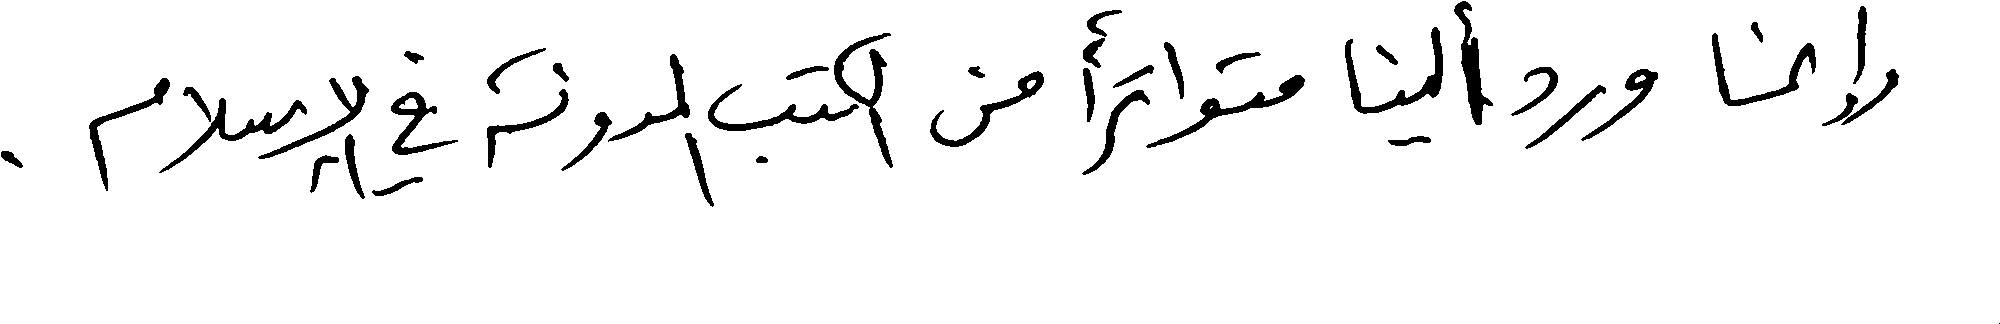 وإنما ورد ألينا متواترأ من الكتب المدونة في الإسلام .